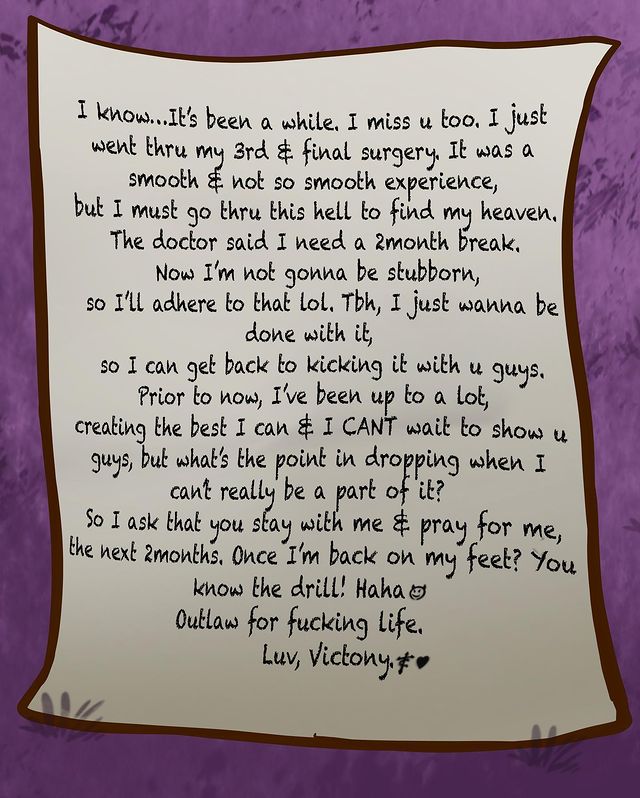 I know...It's been a while. I miss u too. I just
went thru my 3rd & final surgery. It was a
smooth & not so smooth experience,
but I must go thru this hell to find my heaven.
The doctor said I need a 2month break.
Now I'm not gonna be stubborn,
so I'll adhere to that lol. Tbh, I just wanna be
done with it,
so I can get back to kicking it with u guys.
Prior to now, I've been up to a lot,
creating the best I can & I CANT wait to show u
guys, but what's the point in dropping when I
can't really be a part of it?
So I ask that you stay with me & pray for me,
the next 2months. Once I'm back on my feet? You
know the drill! Haha😈
Outlaw for fucking life.
Luv, Victony.